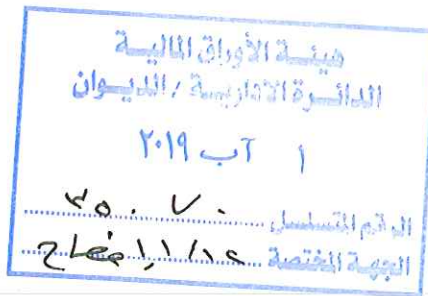 هيئـة الأوراق المالية
الدائـرة الاداريـة / الديـوان
١ آب ٢٠١٩
الرقم المتسلسل
الجهة المختصة إفصاح